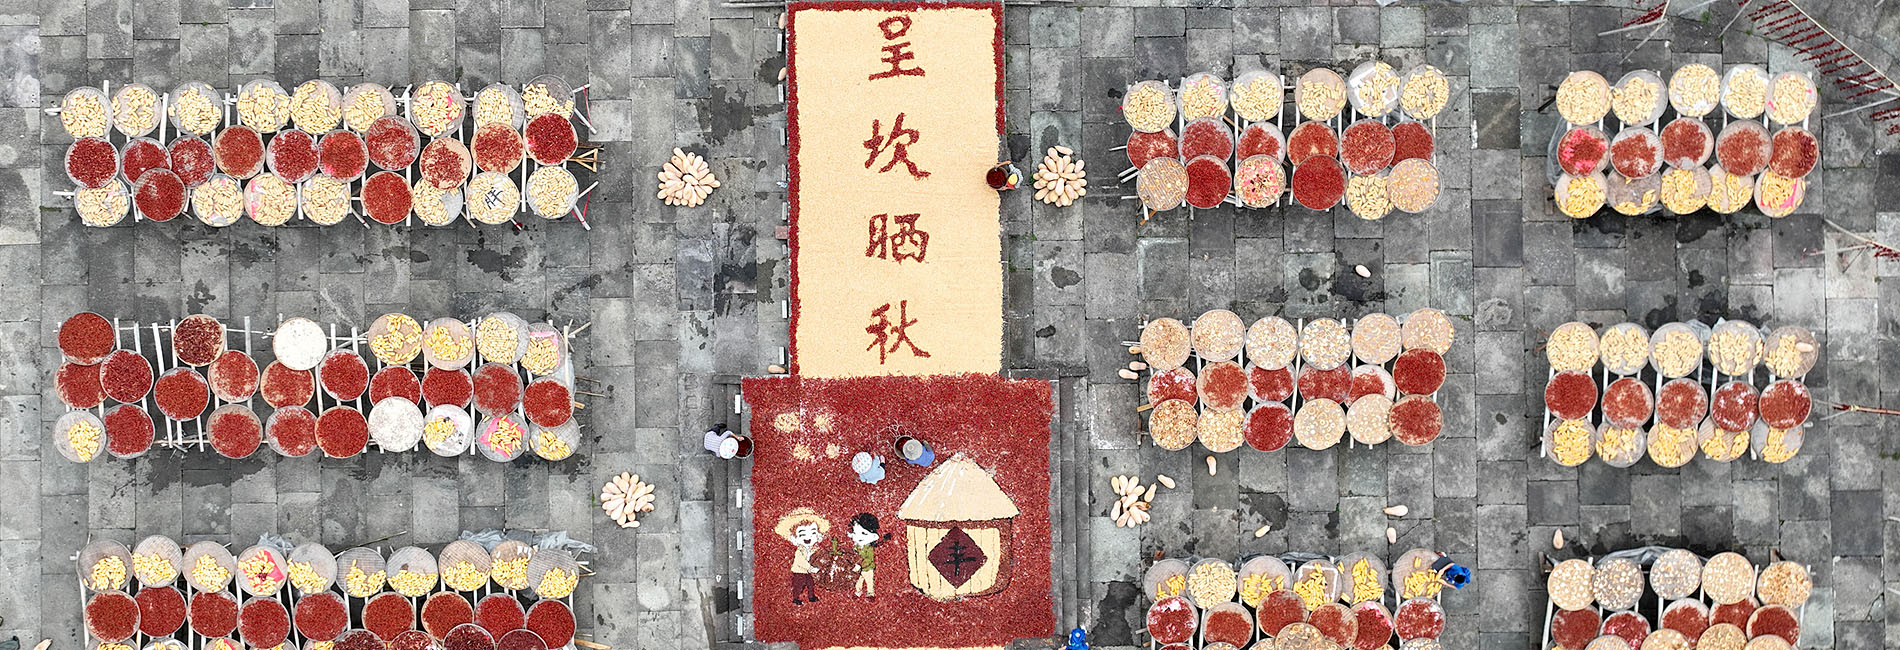 呈坎晒秋
丰